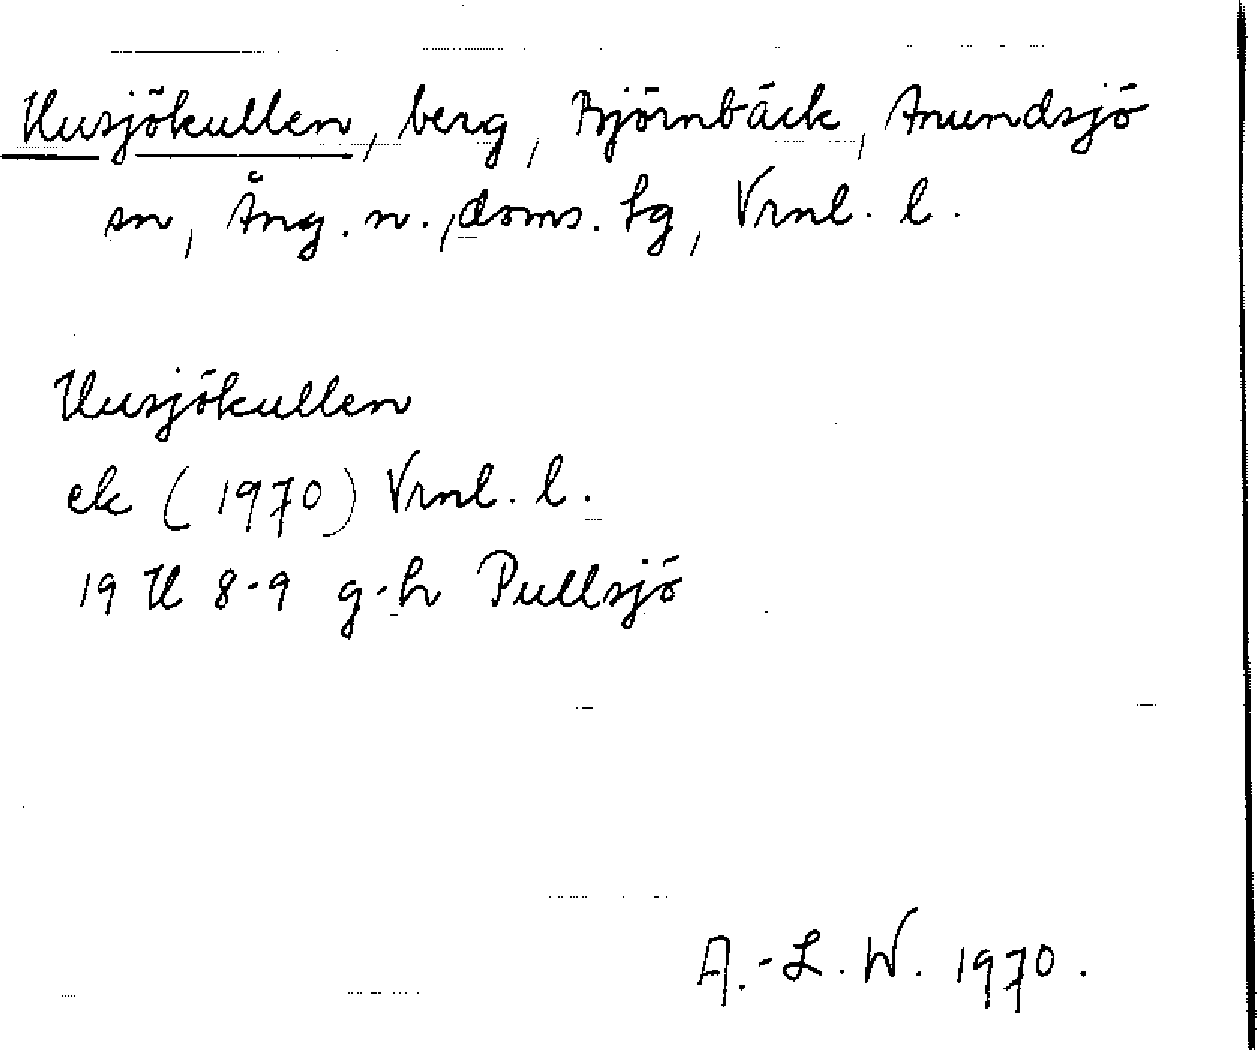 Husjökullen, berg, Björnbäck, Anundsjö
sn, Ång. n., doms. lg, Vrnl. l.
Husjökullen
ek (1970) Vrnl. l.
19 H 8-9 g-h Pullsjö
A.-L. W. 1970.